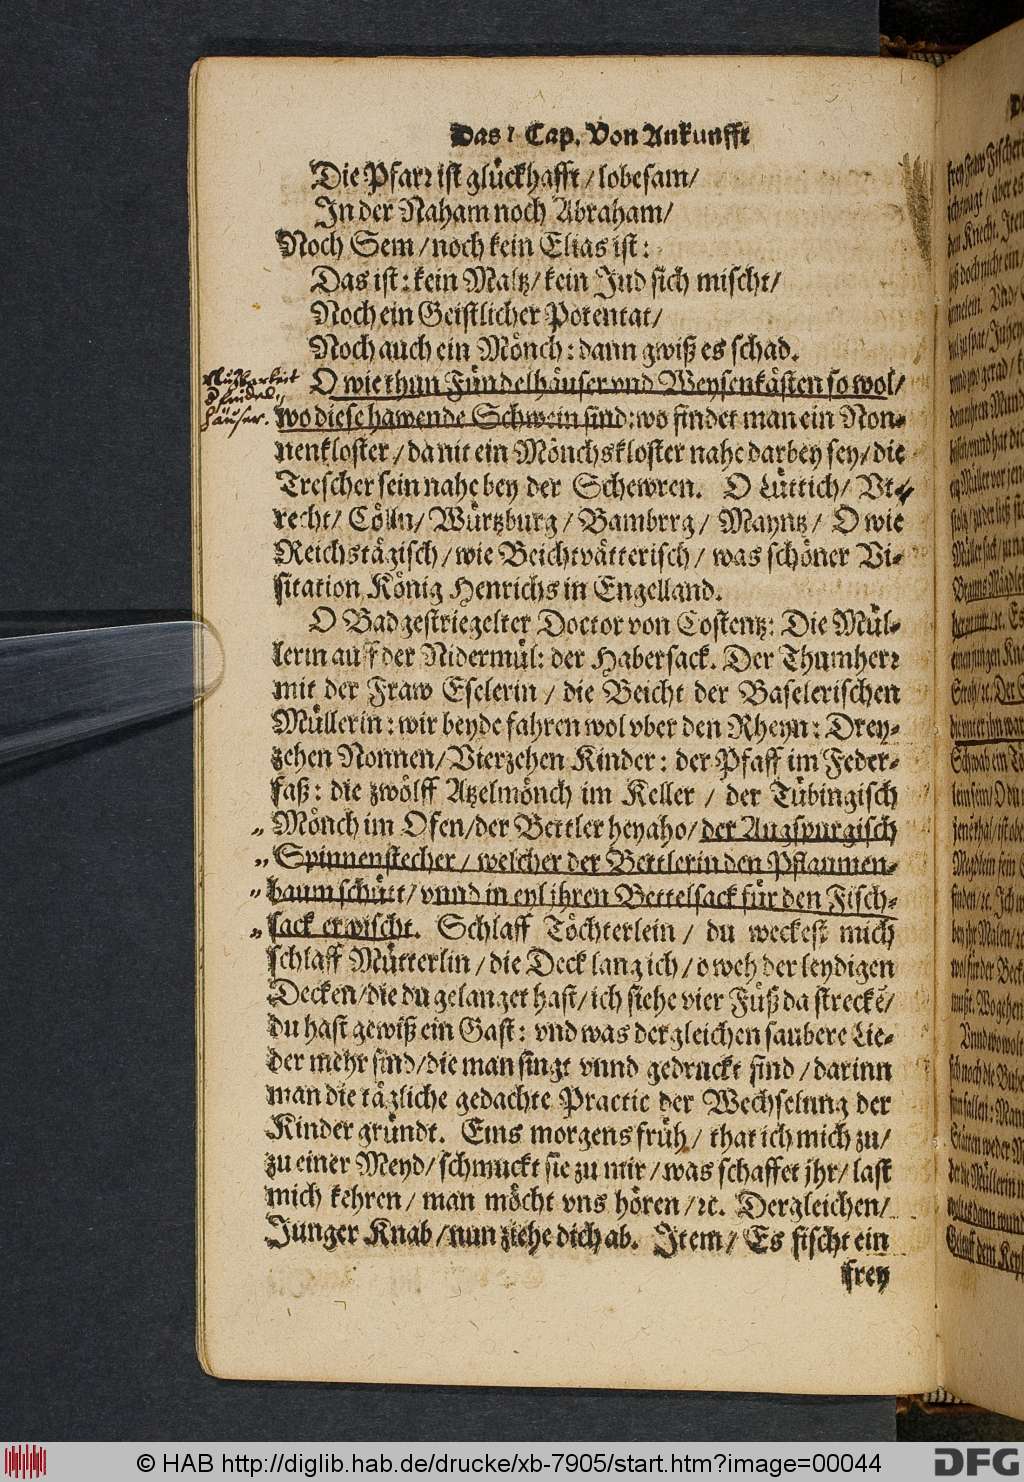 Das 1 Cap. Von Ankunfft
Die Pfarr ist glückhafft / lobesam /
In der Naham noch Abraham /
Noch Sem / noch kein Elias ist :
Das ist : kein Maltz / kein Jud sich mischt /
Noch ein Geistlicher Potentat /
Noch auch ein Mönch : dann gwiß es schad.
O wie thun Fündelhäuser vnd Weysenkästen so wol /
wo diese hawende Schwein sind : wo findet man ein Non-
nenkloster / da nit ein Mönchskloster nahe darbey sey / die
Trescher sein nahe bey der Schewren. O Lüttich / Vt-
recht / Cölln / Würtzburg / Bambrrg / Mayntz / O wie
Reichstägisch / wie Beichtvätterisch / was schöner Vi-
sitation König Henrichs in Engelland.
O Badgestriegelter Doctor von Costentz : Die Mül-
lerin auff der Nidermül : der Habersack. Der Thumherr
mit der Fraw Eselerin / die Beicht der Baselerischen
Müllerin : wir beyde fahren wol vber den Rheyn : Drey-
zehen Nonnen / Vierzehen Kinder : der Pfaff im Feder-
faß : die zwölff Atzelmönch im Keller / der Tübingisch
Mönch im Ofen / der Bettler heyaho / der Augspurgisch
Spinnenstecher / welcher der Bettlerin den Pflaumen-
baum schütt / vnnd in eyl jhren Bettelsack für den Fisch-
sack erwischt. Schlaff Töchterlein / du weckest mich
schlaff Mütterlin / die Deck lang ich / o weh der leydigen
Decken / die du gelanget hast / ich siehe vier Füß da streckē /
du hast gewiß ein Gast : vnd was dergleichen saubere Lie-
der mehr sind / die man singt vnnd gedruckt sind / darinn
man die tägliche gedachte Practic der Wechselung der
Kinder gründt. Eins morgens früh / that ich mich zu /
zu einer Meyd / schmuckt sie zu mir / was schaffet jhr / last
mich kehren / man möcht vns hören / ꝛc. Dergleichen /
Junger Knab / nun ziehe dich ab. Item / Es fischt ein
frey
häuser.
© HAB http://diglib.hab.de/drucke/xb-7905/start.htm?image=00044
DFG